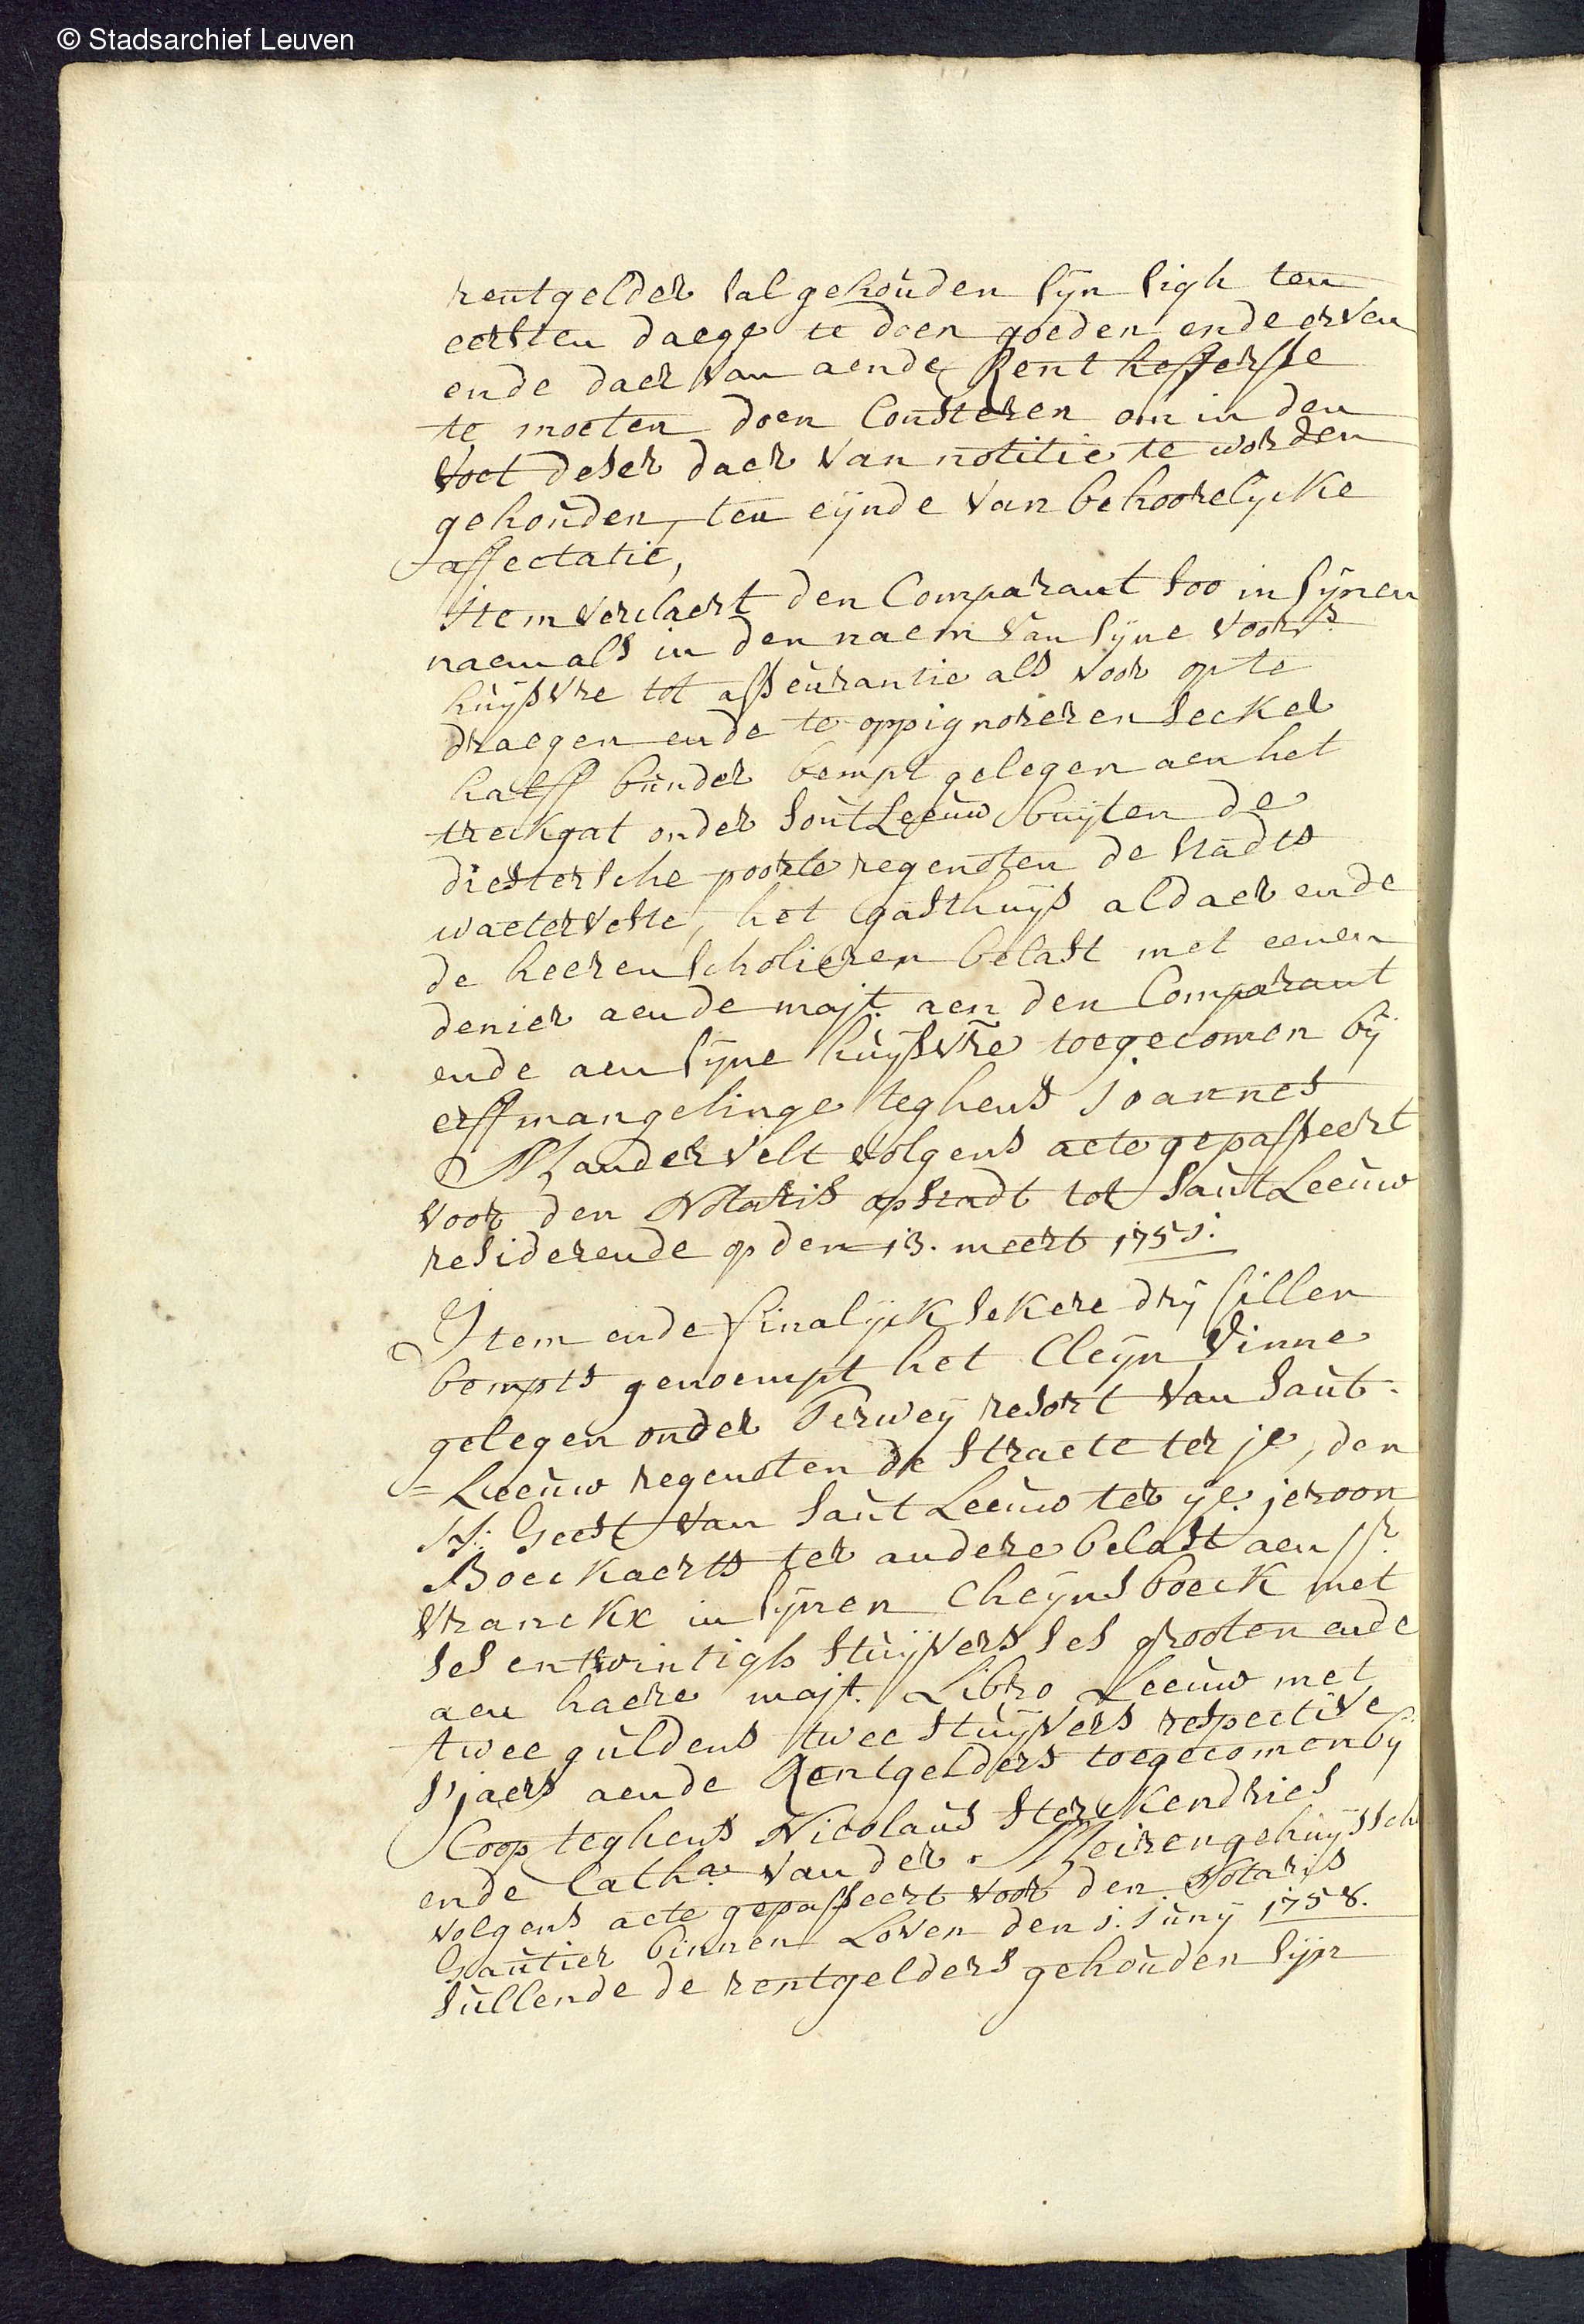 © Stadsarchief Leuven
rentgelder sal gehouden sijn sigh ten
eersten daege te doen goeden ende erven
ende daer van aende Rent heffersse
te moeten doen Consteren om in den
voet deser daer van notitie te worden
gehouden, ten eijnde van behoorelijcke
affectatie,
Item verclaert den Comparant soo in sijnen
naem als in den naem van sijne voors:
huijsvre tot asseurantie als voor op te
draegen ende te oppignoreren secker
halff bunder bempt gelegen aen het
treckgat onder Soutleeuw buijten de
diestersche poorte regenoten de stadts
waeterveste, het gasthuijs aldaer ende
de heeren scholieren belast met eenen
denier aen de majt. aen den Comparant
ende aen sijne huijsvre toegecomen bij
erffmangelinge teghens Joannes
Mandervelt volgens acte gepasseert
voor den Notaris opstadt tot SautLeeuw
residerende op den 13. meert 1751.
Item ende finalijck sekere drij sillen
bempts genoempt het Cleijn Vinne
gelegen onder Terweij resort van Saut-
=Leeuw regenoten de straete ter je, den
H: Geest van SautLeeuw ter ije. jeroon
Boeckaerts ter andere belast aen sr.
Vranckx in sijnen Cheijnsboeck met
ses entwintigh stuijvers ses grooten ende
aen haere majt. Libro Leeuw met
twee guldens twee stuijvers respective
s'jaers aende Rentgelders toegecomen bij
Coop teghens Nicolaus Sterckendries
ende Catha. van der Meiren gehuijssch
volgens acte gepasseert voor den Notaris
Gautier binnen Loven den 1. Junij 1758.
sullende de rentgelders gehouden sijn